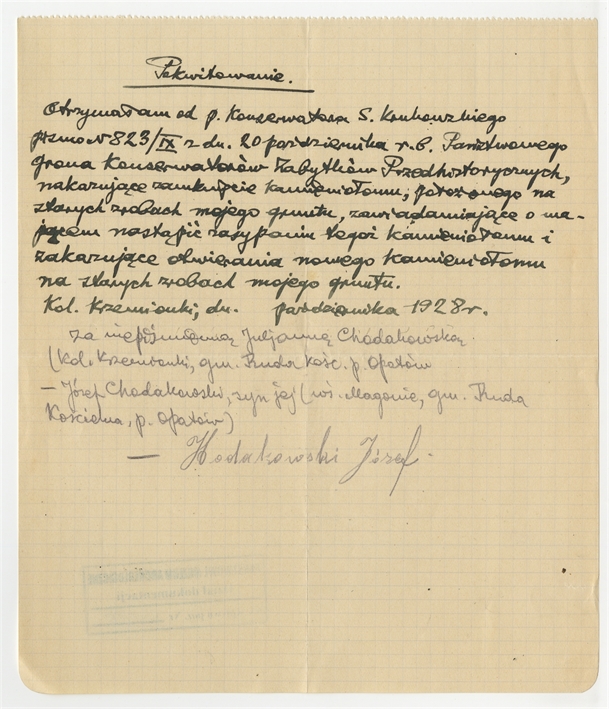 Pokwitowanie.
Otrzymałam od p. Konserwatora S. Krukowskiego
pismo N 823/IX z dn. 20 października r. b. Państwowego
grona Konserwatorów Zabytków Przedhistorycznych,
nakazujące zamknięcie kamieniołomu, położonego na
starych zrobach mojego gruntu, zawiadamiające o ma-
jącem nastąpić zasypaniu tegoż kamieniołomu i
zakazujące otwierania nowego kamieniołomu
na starych zrobach mojego gruntu.
Kol. Krzemionki, dn. października 1928 r.
za niepiśmienną Juljannę Chodakowską
(Kol. Krzemionki, gm. Ruda Kość. p. Opatów
— Józef Chodakowski, syn jej (wś. Magonie, gm. Ruda
Kościelna, p. Opatów)
— Hodakowski Józef.